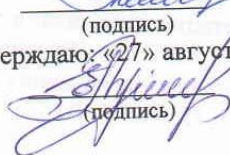 (подпись)
ерждаю: «27» август
(подпись)